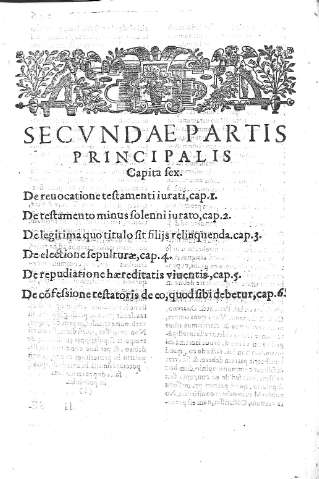 SECVNDAE PARTIS
PRINCIPALIS
Capita sex.
De reuocatione testamenti iurati, cap.1.
De testamento minus solenni iurato, cap.2.
De legitima quo titulo sit filijs relinquenda. cap.3.
De electione sepulturæ, cap.4.
De repudiatione hæreditatis viuentis, cap.5.
De cõfessione testatoris de eo, quod sibi debetur, cap.6.